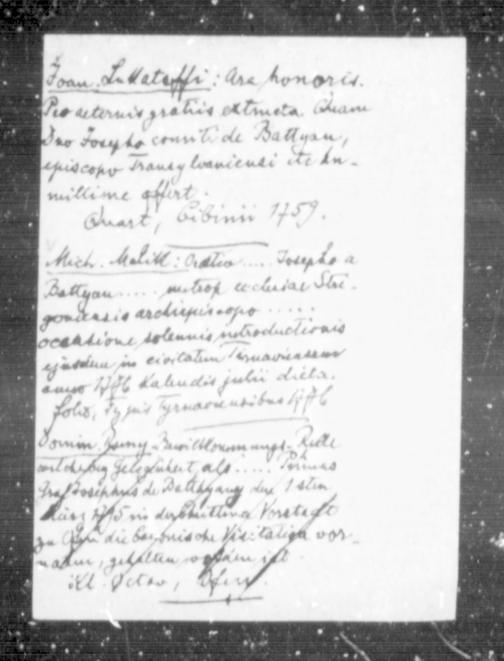 Joan. Lukatsffi: Ara honoris.
Pro aeternis gratiis extructa. Quam
Dno Josepho comiti de Battyan,
episcopo Transylvaniensi etc hu-
millime offert.
Quart, Cibinii 1759.
Mich. Malik: Oratio ..... Josepho a
Battyan ..... metrop. ecclesiae Stri-
goniensis archiepiscopo .....
occasione solennis introductionis
ejusdem in civitatem Tirnaviensem
anno 1776 Kalendis julii dicta.
folio, Typis Tyrnaviensibus 1776
Domin. Bewillkommungs-Rede
welche bey Gelegenheit, als ..... Primas
Graf Josephus de Batthyany den 1 sten
März in der Vorstadt
zu Ofen die Canonische Visitation vor-
nahm, gehalten worden ist.
kl. Octav, Ofen.